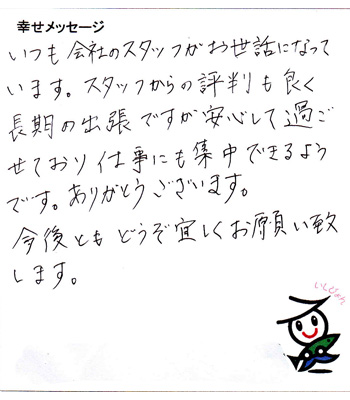 幸せメッセージ
いつも会社のスタッフがお世話になって
います。スタッフからの評判も良く
長期の出張ですが安心して過ご
せており仕事にも集中できるよう
です。ありがとうございます。
今後ともどうぞ宜しくお願い致
します。